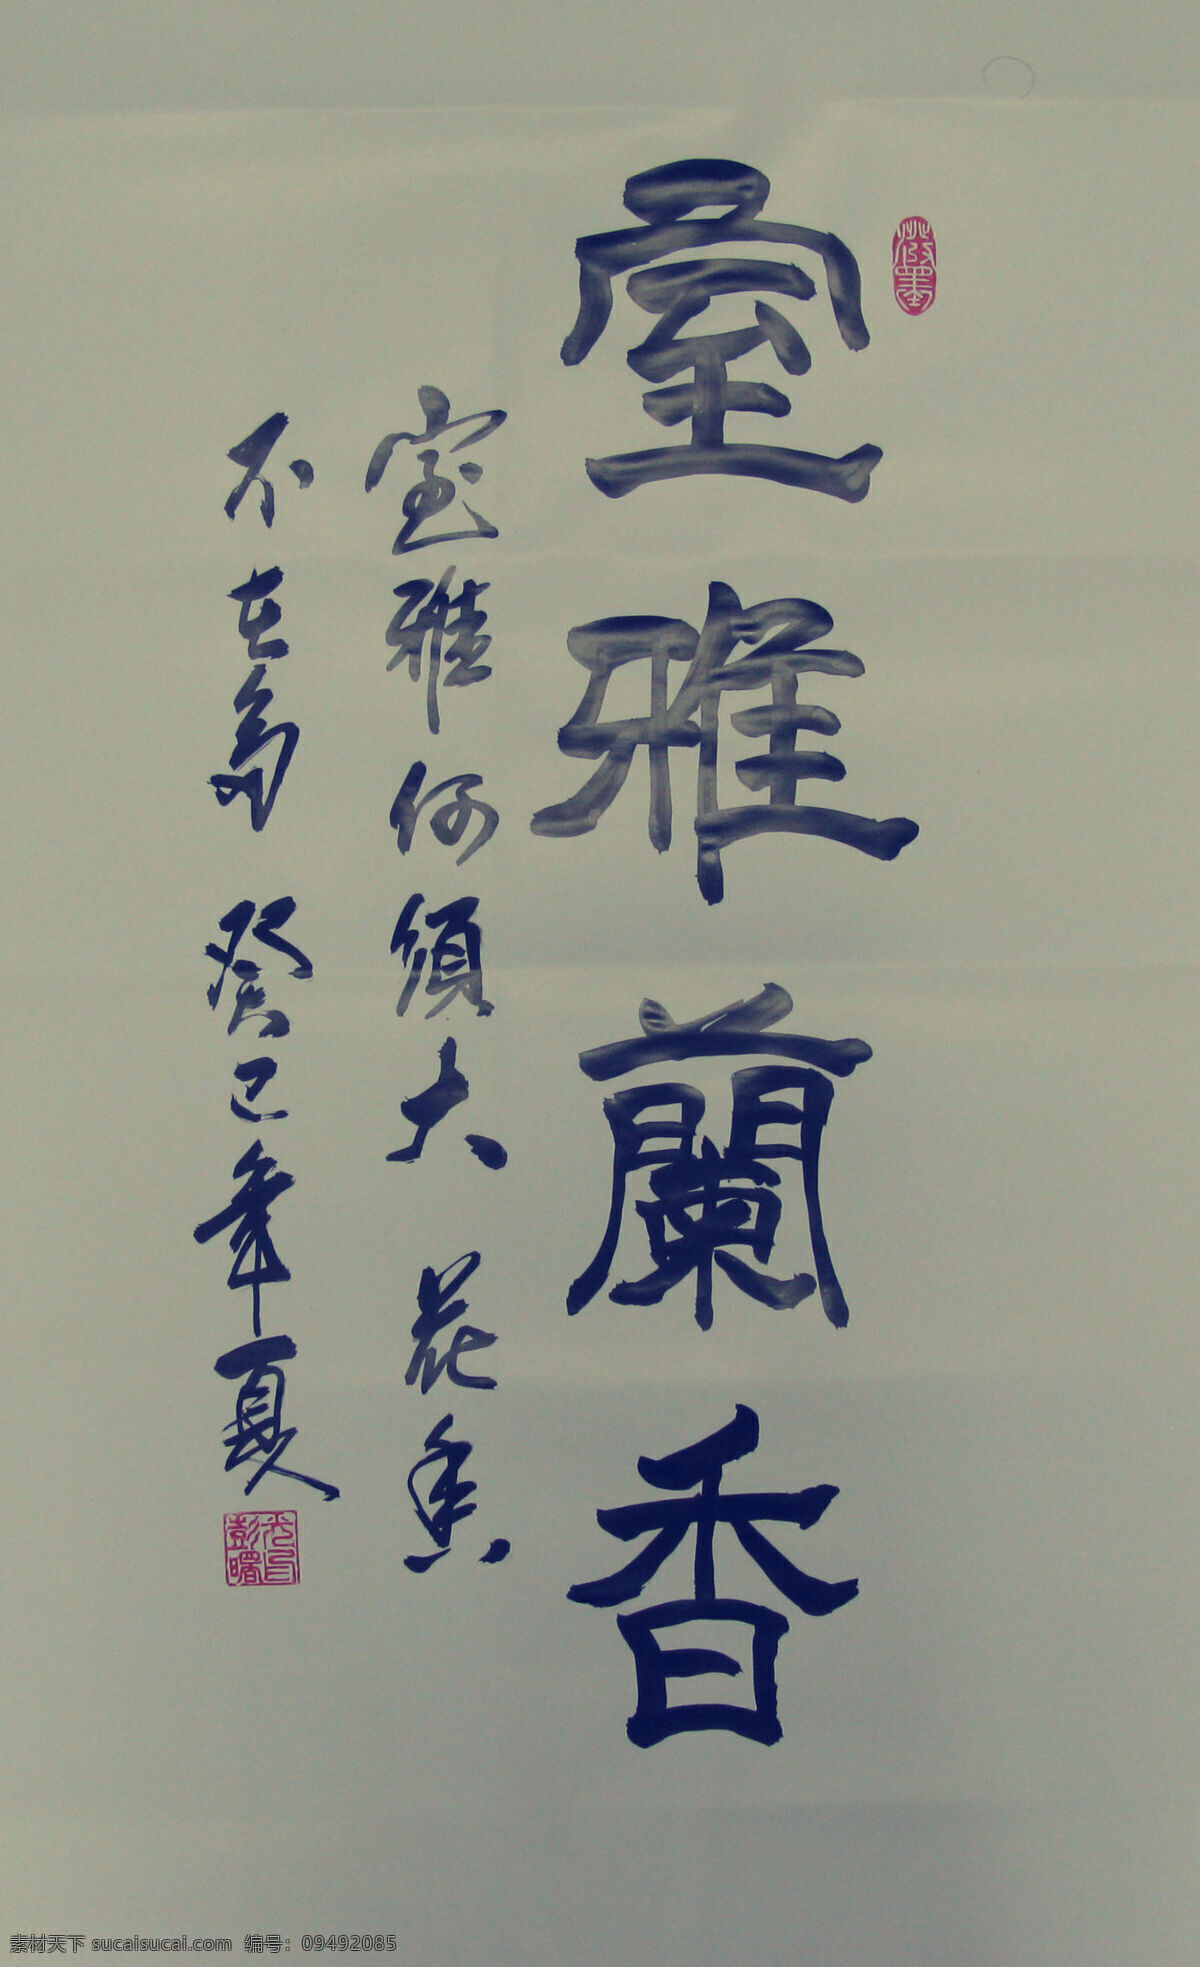 室雅蘭香
室雅何須大 花香
不在多 癸巳年夏
彭曙
素材天下 sucaisucai.com 编号：09492085